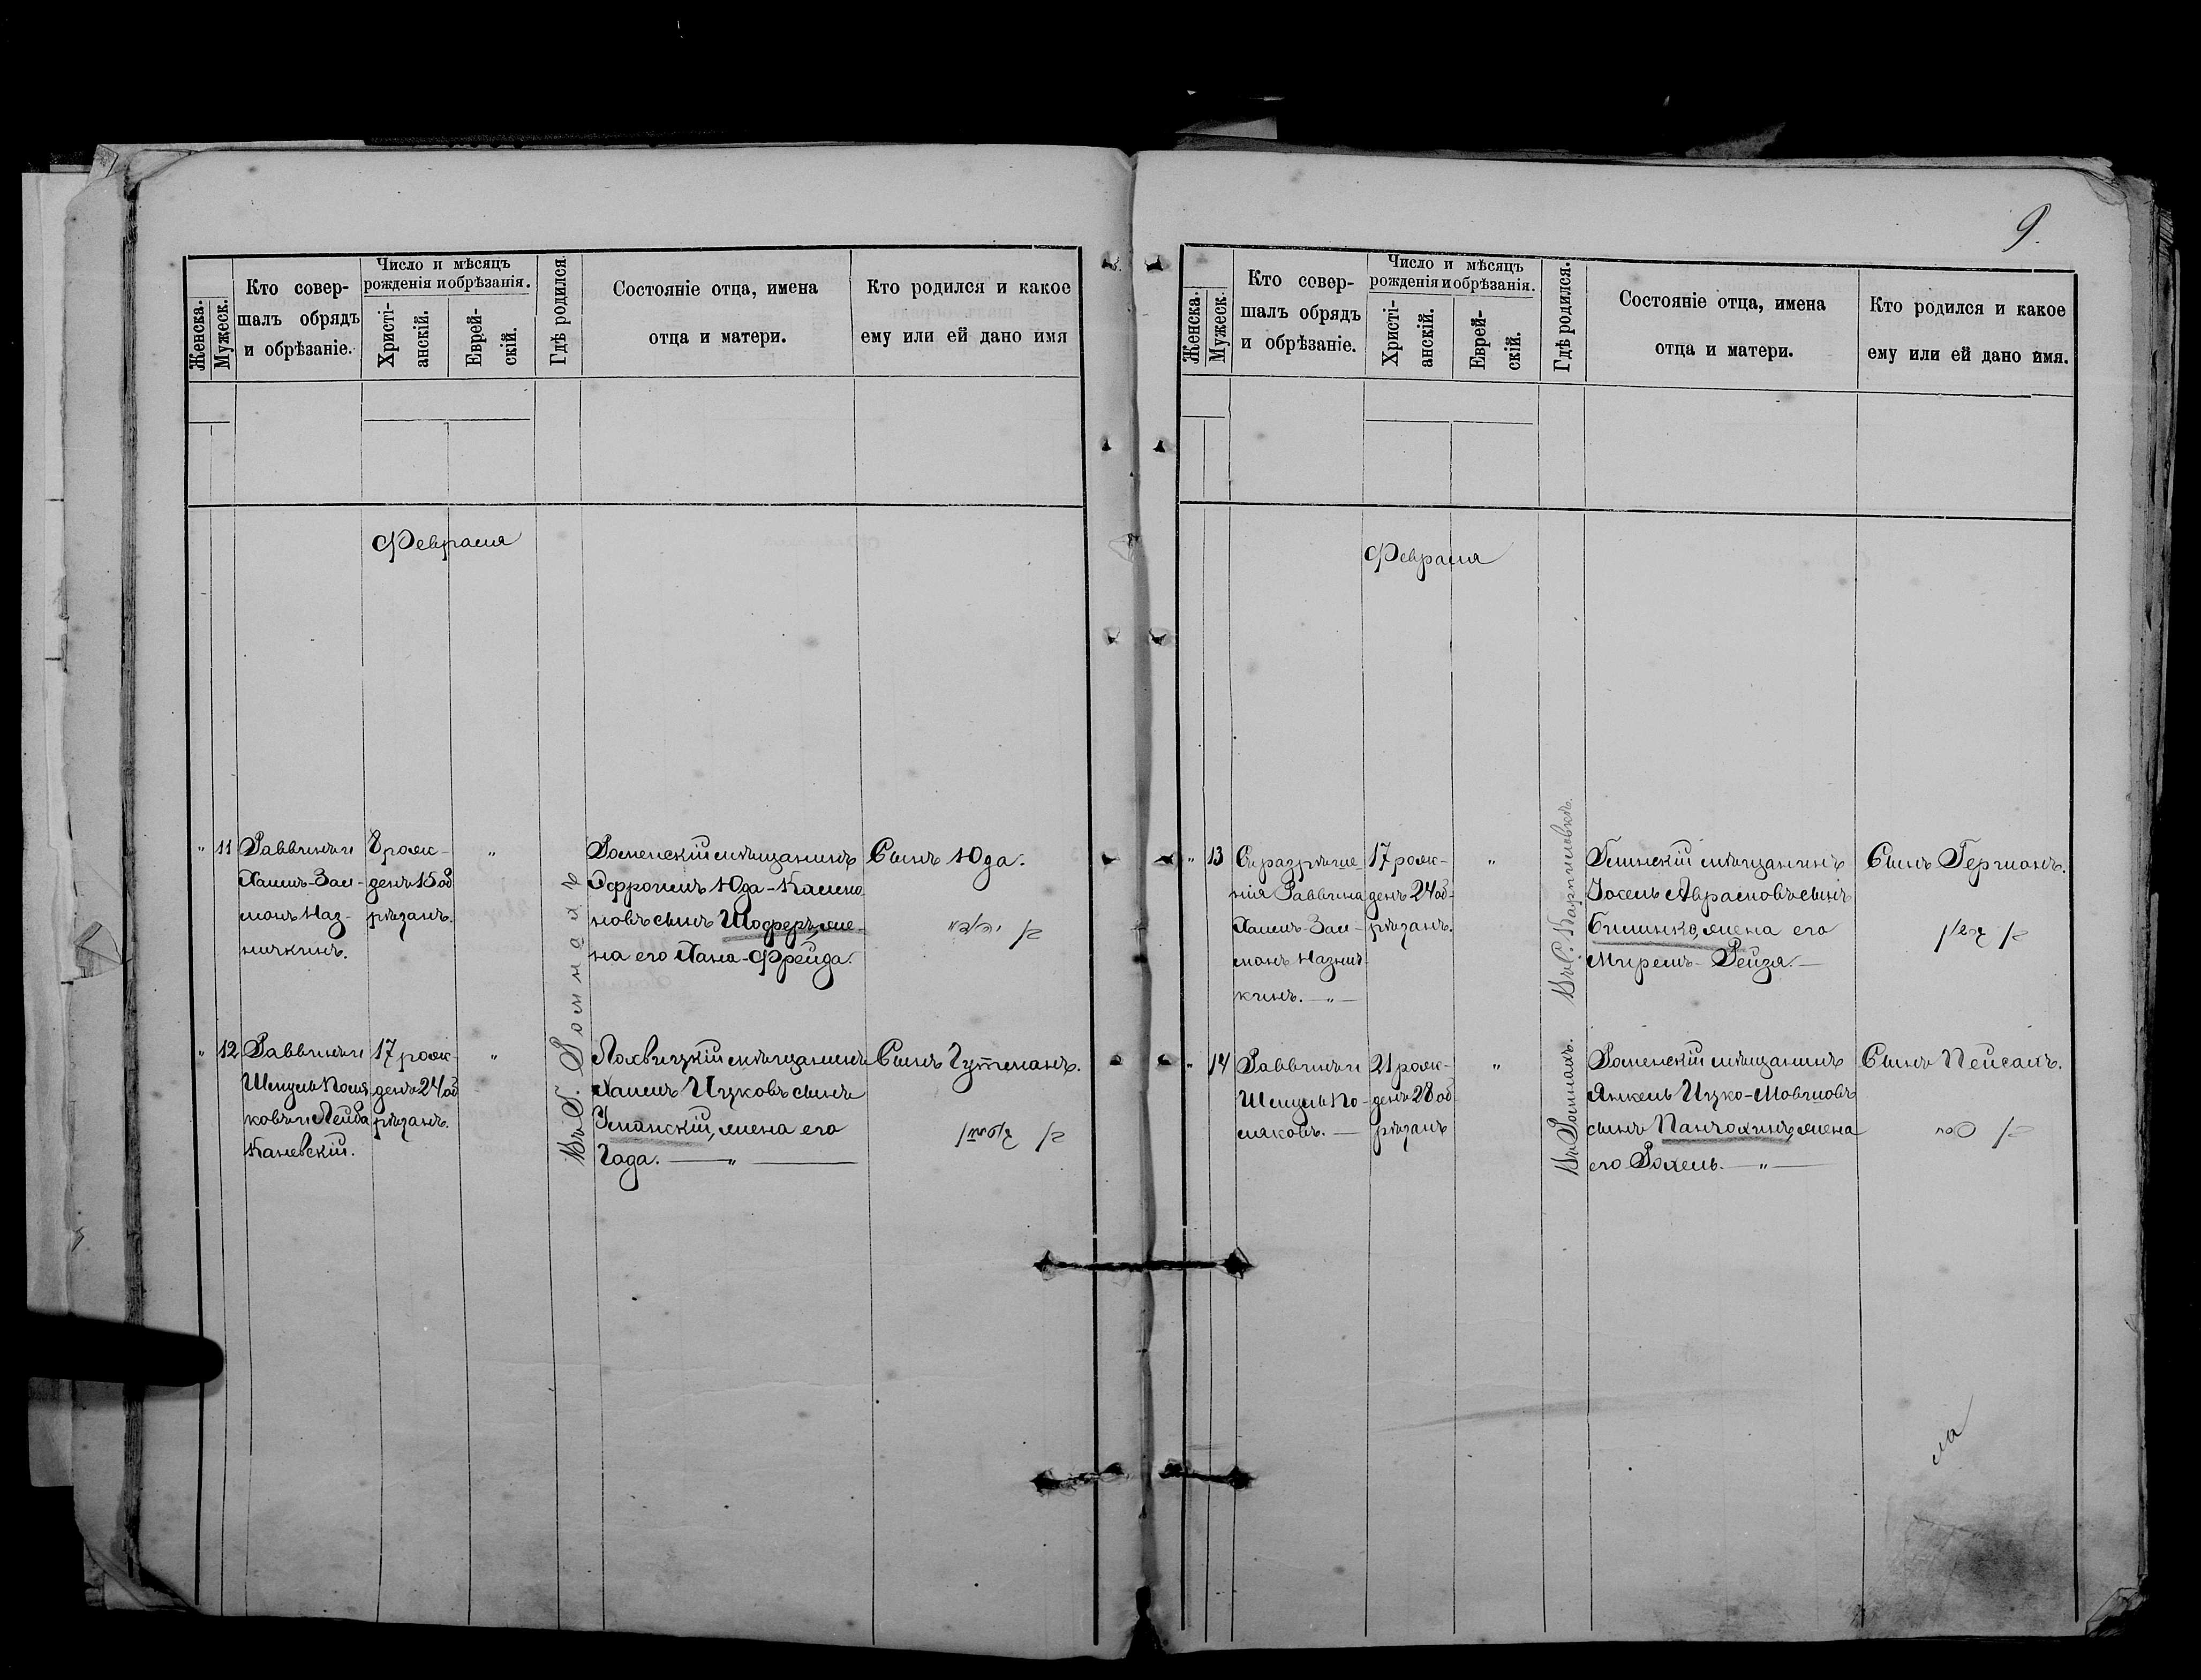 9.
Женска.
Мужеск.
Кто совер-
шалъ обрядъ
и обрѣзаніе.
Число и мѣсяцъ
рожденія и обрѣзанія.
Христі-
анскій.
Еврей-
скій.
Гдѣ родился.
Состояніе отца, имена
отца и матери.
Кто родился и какое
ему или ей дано имя
Февраля
" 11
Раввинъ и
Хаимъ-Зал-
монъ Наз-
ничкинъ.
8 рож-
денъ 15 об
рѣзанъ.
"
Въ Г. Ромнахъ
Роменскій мѣщанинъ
Эфроимъ Юда-Калмо
новъ сынъ Шофферъ, же-
на его Хана-Фрейда.
Сынъ Юда.
בן יהודה
" 12
Раввинъ и
Шмуль Поля
ковъ и Лейба
Каневскій.
17 рож-
денъ 24 об
рѣзанъ.
"
Лохвицкій мѣщанинъ
Хаимъ Ицковъ сынъ
Уманскій, жена его
Года. — " —
Сынъ Гутманъ.
בן
Женска.
Мужеск.
Кто совер-
шалъ обрядъ
и обрѣзаніе.
Число и мѣсяцъ
рожденія и обрѣзанія.
Христі-
анскій.
Еврей-
скій.
Гдѣ родился.
Состояніе отца, имена
отца и матери.
Кто родился и какое
ему или ей дано имя.
Февраля
" 13
Съ разрѣше-
нія Раввина
Хаимъ-Зал-
монъ Назнич-
кинъ. — " —
17 рож-
денъ 24 об-
рѣзанъ.
"
Въ С.
Глинскій мѣщанинъ
Іосель Аврамовъ сынъ
жена его
Мирелъ-Рейза. —
Сынъ Гершонъ.
בן גרשון
" 14
Раввинъ и
Шмуль По-
ляковъ. —
21 рож-
денъ 28 об
рѣзанъ
"
Въ Ромнахъ.
Роменскій мѣщанинъ
Янкель Ицко-Мовшовъ
сынъ жена
его Рохель. — " —
Сынъ Пейсахъ.
בן פסח
ла